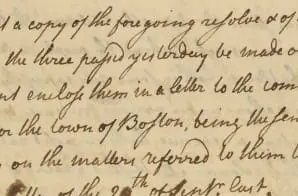 a copy of the foregoing resolve & of
the three passed yesterday be made o
enclose them in a letter to the com
or the town of Boston, being the sen
on the matters referred to them
of the th of Sepr. last.